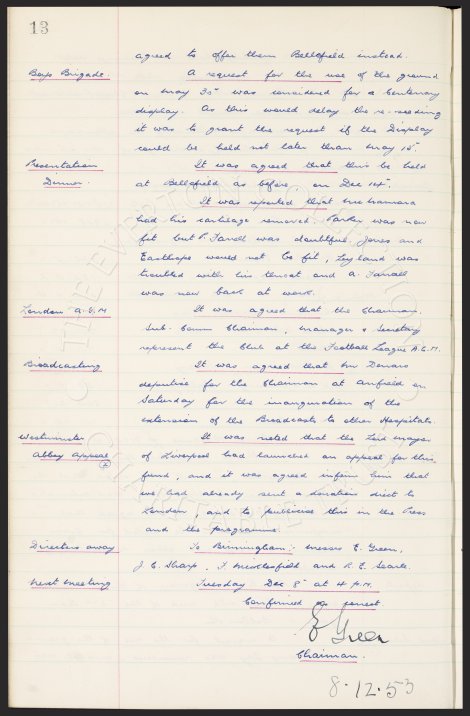 13
agreed to offer them Bellefield instead.
Boys Brigade. A request for the use of the ground
on May 30th was considered for a Centenary
display. As this would delay the re-seeding
it was to grant the request if the Display
could be held not later than May 15th.
Presentation It was agreed that this be held
Dinner. at Bellefield as before, on Dec 14th.
It was reported that McNamara
had his cartilage removed. Parker was now
fit but P. Farrell was doubtful. Jones and
Easthope would not be fit, Leyland was
troubled with his throat and A. Farrall
was now back at work.
London A.G.M It was agreed that the Chairman,
Sub-Comm Chairman, Manager & Secretary
represent the Club at the Football League A.G.M.
Broadcasting It was agreed that Mr
deputise for the Chairman at Anfield on
Saturday for the inauguration of the
extension of the Broadcasts to other Hospitals.
Westminster It was noted that the Lord Mayor
Abbey Appeal of Liverpool had launched an appeal for this
fund, and it was agreed inform him that
we had already sent a donation direct to
London, and to publicise this in the Press
and the programme.
Directors away To Birmingham; Messrs E. Green,
J. C. Sharp, F. Micklesfield and R. E. Searle.
Next Meeting Tuesday Dec 8th at 4 P.M.
Confirmed as correct
E Green
Chairman.
8.12.53
THE EVERTON COLLECTION
CHARITABLE TRUST